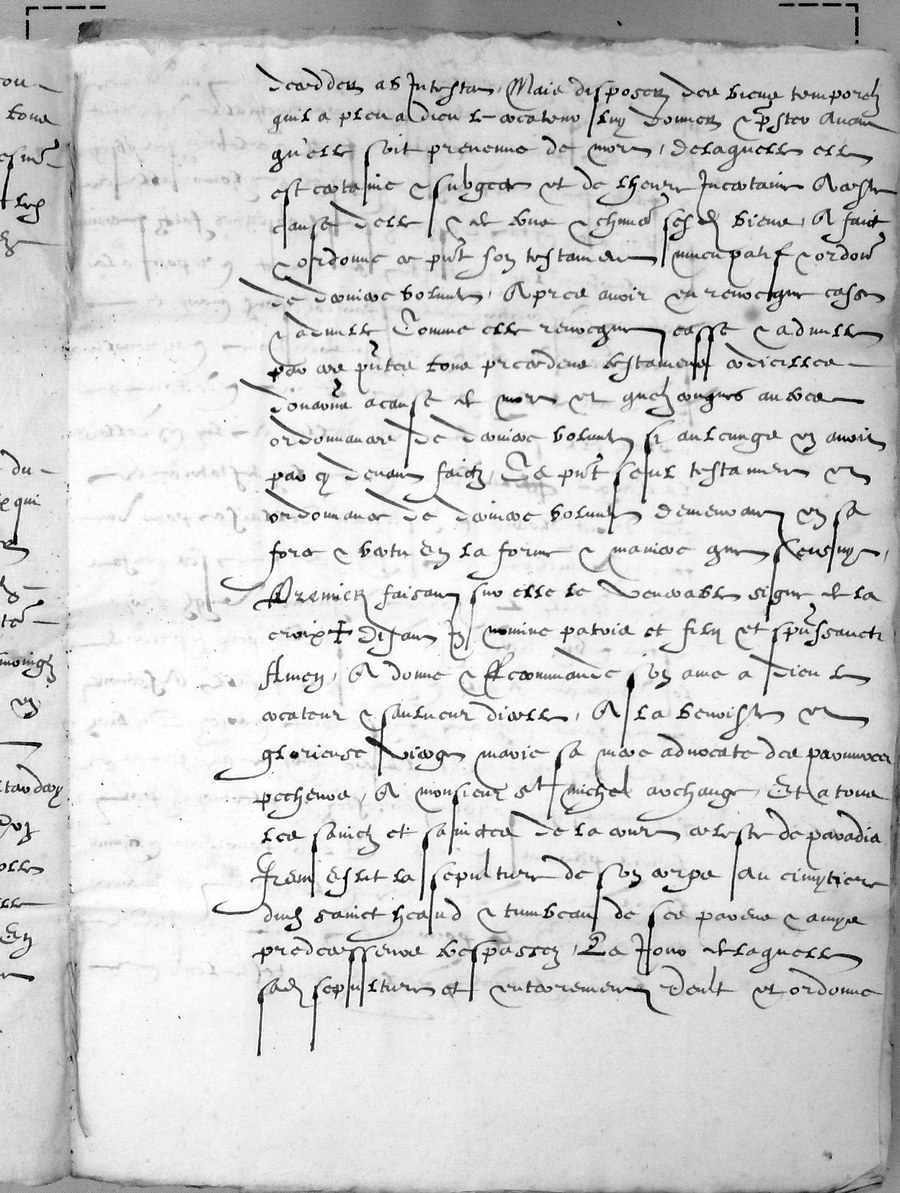 decedder ab Intestat, Mais disposer des biens temporelz
quil a pleu a dieu le createur luy donner & p̃ster Avant
qu'elle soit prevenue de mort, de laquelle elle
est certaine & subgecte et de lheure Incertaine A ceste
cause d elle & de tous & chm̃s sesd biens, A faict
& ordonne ce pñt son testament nuncupatif & ordoñ
de derniere volunte, Apres avoir revocque casse
& adnulle Comme elle revocque casse & adnulle
par ces p̃ntes tous precedens testamens codicilles
donaõns a cause de mort et quelzconques aultres
ordonnances de derniere volunte si aulcungs en avoit
par cy devant faictz, Ce pñt seul testament et
ordonnance de derniere volunte demeurant en sa
force & vertu En la forme & maniere que sensuyt,
Premier faisant sur elle le venerable signe de la
croix + disant In nomine patris et filij et spũssancti
Amen, A donne & Recommande son ame a dieu le
createur & saulueur dicelle, A la benoiste et
glorieuse vierge marie sa mere advocate des pauvres
pecheurs, A monsieur st michel archange, Et a tous
les sainctz et sainctes de la court celeste de paradis
Item eslit la sepulture de son corps au cimytiere
dud sainct & tumbeau de ses parens & amys
predecesseurs trespassez, Le Jour de laquelle
sad sepulture et enterrement veult et ordonne
ou
tous
les
du
qui
en